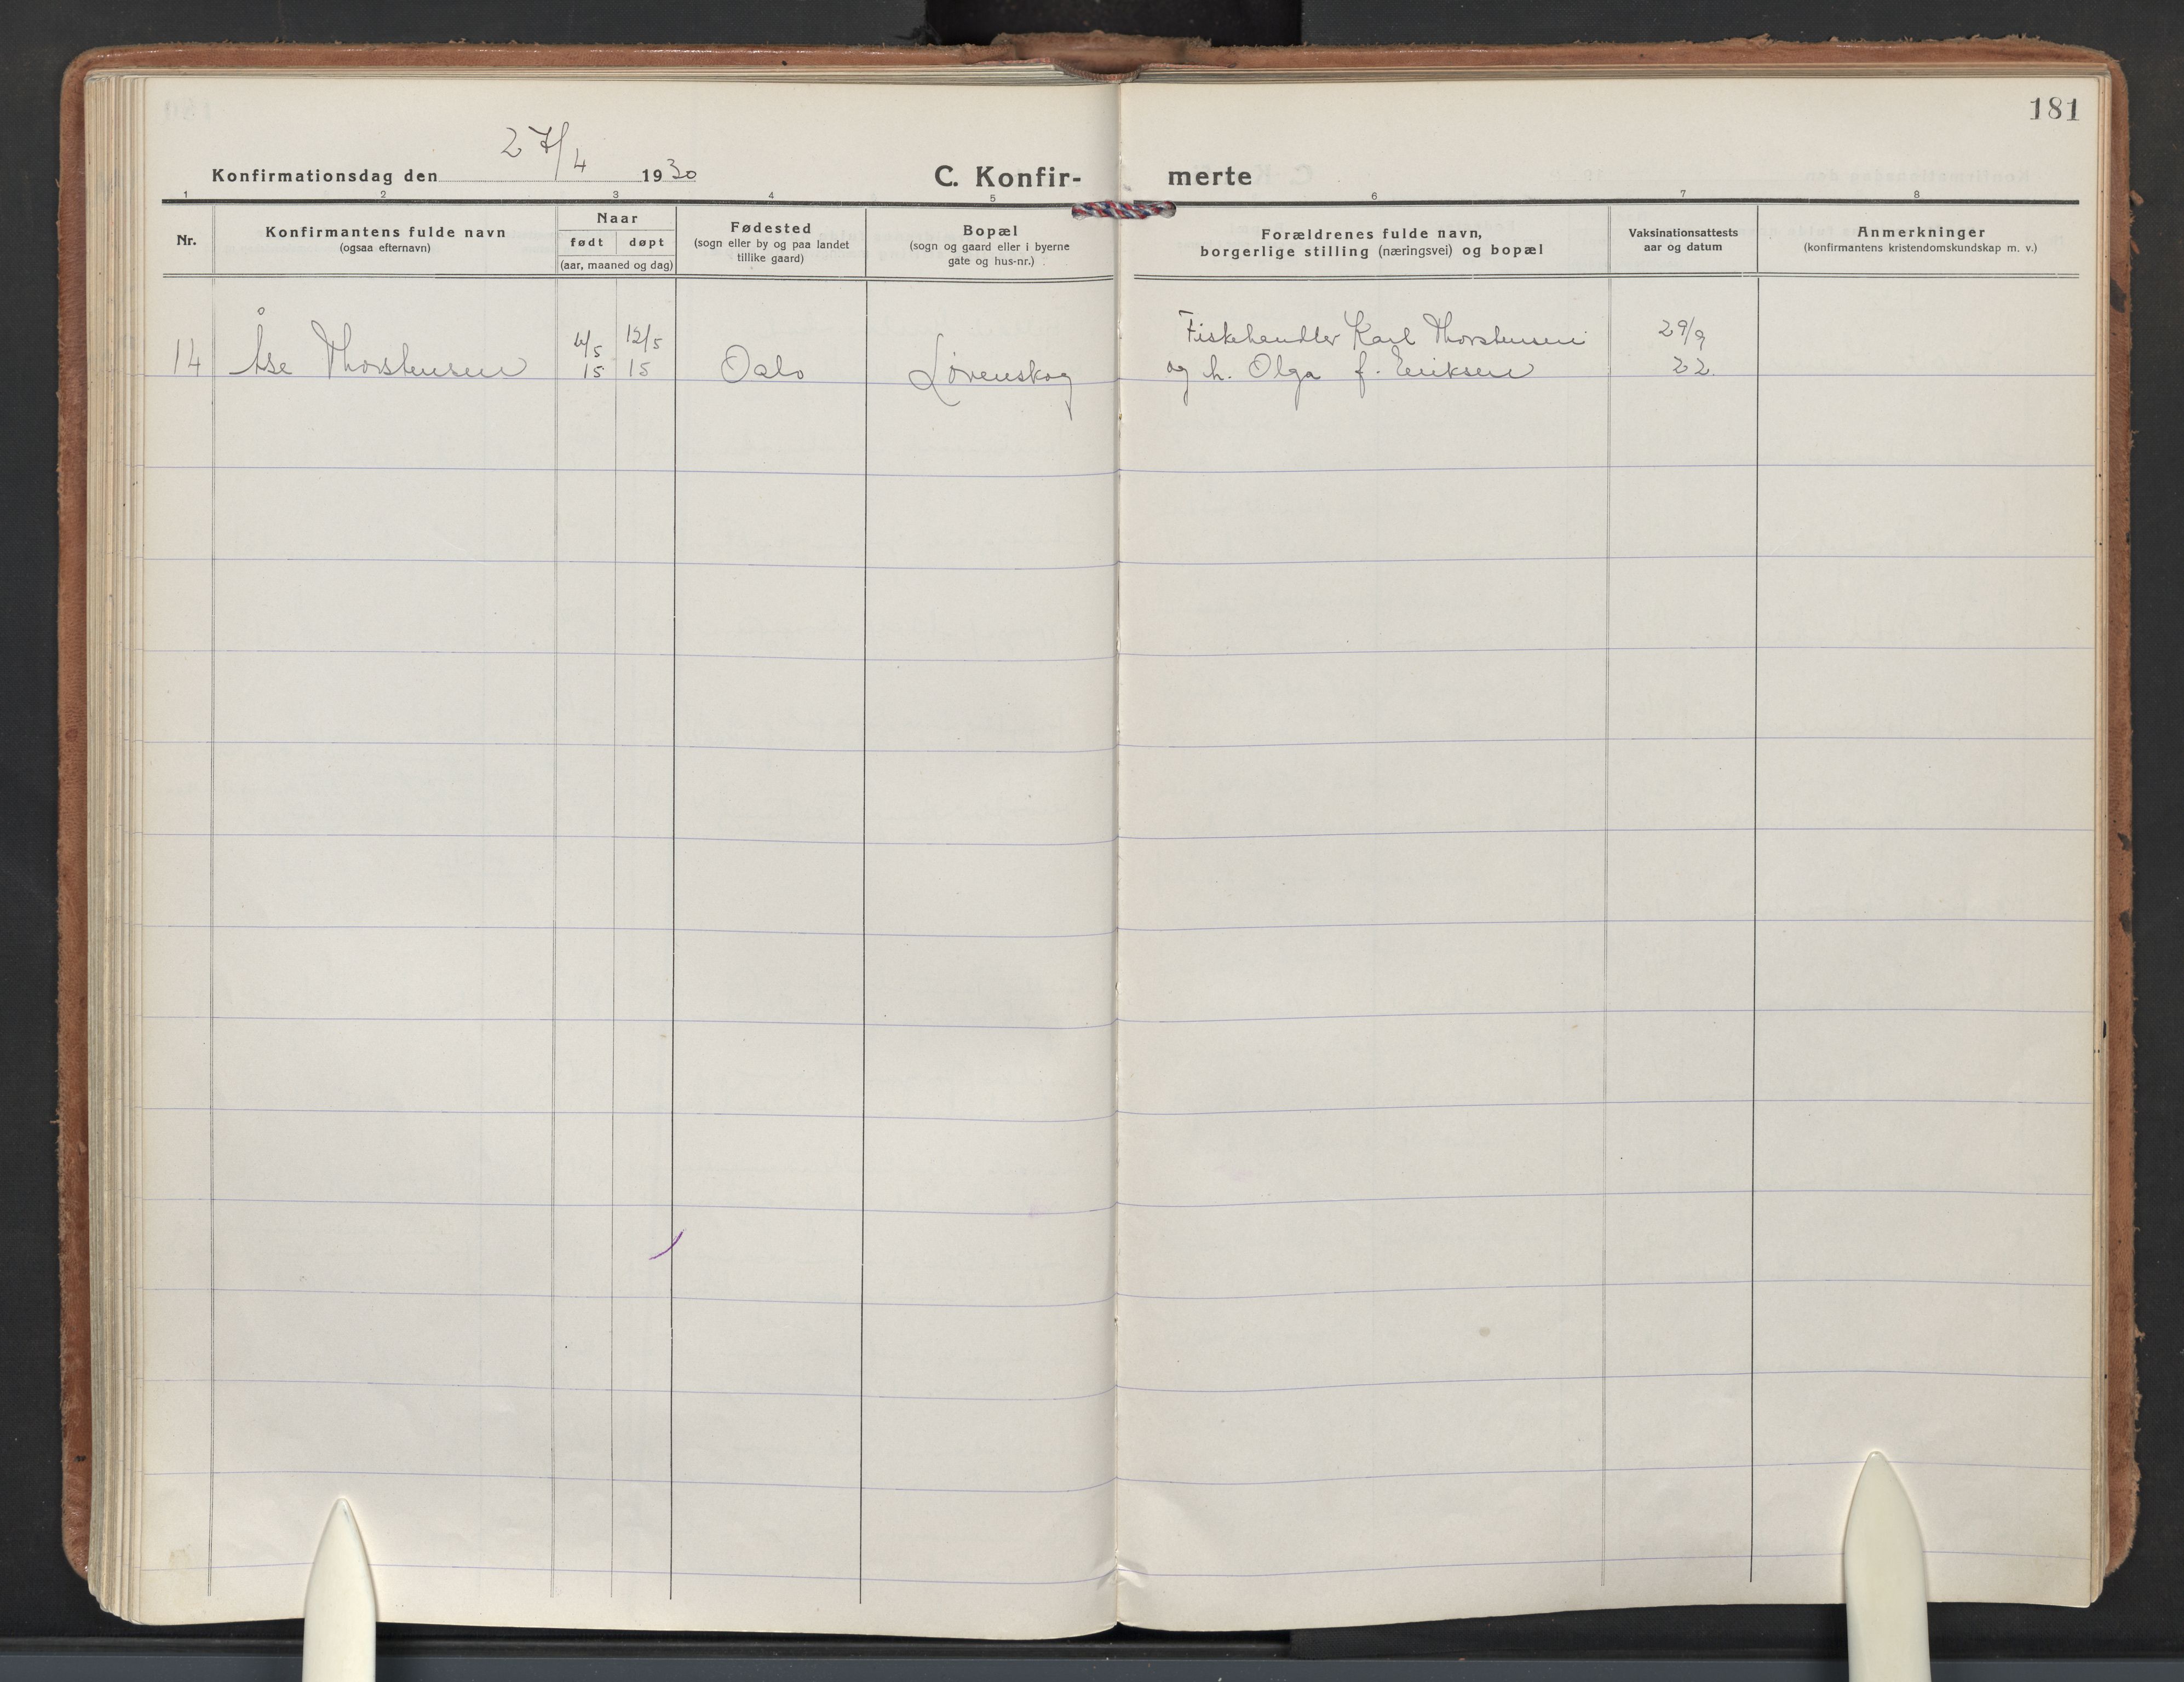 181
27/4
Konfirmationsdag den 1930
C. Konfir- merte
1 2 3 4 5 6 7 8
Nr.
Konfirmantens fulde navn
(ogsaa efternavn)
Naar
født døpt
(aar, maaned og dag)
Fødested
(sogn eller by og paa landet
tillike gaard)
Bopæl
(sogn og gaard eller i byerne
gate og hus-nr.)
Forældrenes fulde navn,
borgerlige stilling (næringsvei) og bopæl
Vaksinationsattests
aar og datum
Anmerkninger
(konfirmantens kristendomskundskap m. v.)
12/5 Fiskehandler Karl Thorstensen 29/9
14 Åse Thorstensen 15 15 Oslo Lørenskog og h. Olga f. Eriksen 22.